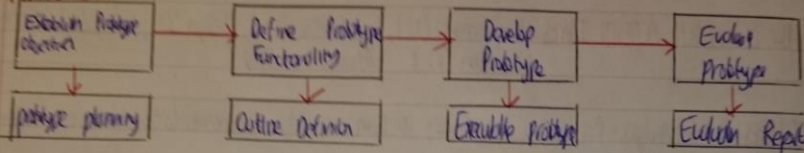 Establish Prototype
objectives
Define Prototype
Functionality
Develop
Prototype
Evaluate
Prototype
prototype planning
Outline Definition
Executable prototype
Evaluation Report